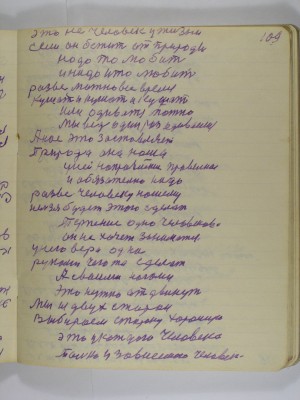 109
это не человек у жизни
если он бежит от природы
надо то любит
и надо его любить
разве можно все время
кушать и кушать и кушать
или одивать пално
мы ведь один раз
А нас это заставляет
Природа она наша
и обязательно надо
разве человеку нашему
нельзя будет этого сделать
Терпение одно человеков-
он не хочет заниматся
у него вера одна
руками чего то сделать
А своими ногами
это нужно отдвинуть
Мы и двух сторон
Выбираем сторону хорошую
это у каждого человека
только у зависимости человек-